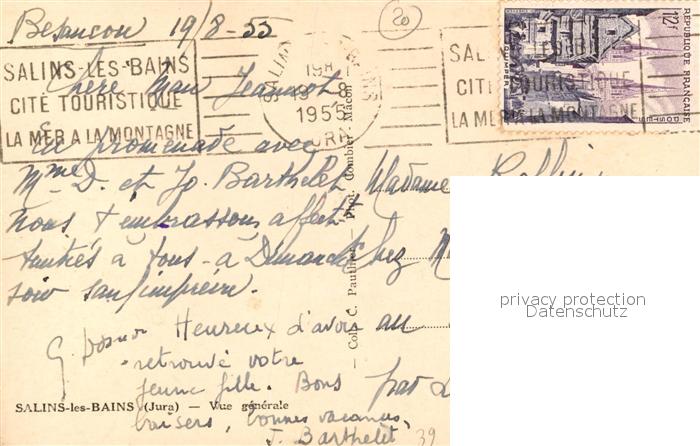 Besançon 19/8-55
20
SALINS-LES-BAINS
CITÉ TOURISTIQUE
LA MER A LA MONTAGNE
19-8
1955
JURA
SALINS-LES-BAINS
CITÉ TOURISTIQUE
LA MER A LA MONTAGNE
12F
REPUBLIQUE FRANÇAISE
QUIMPER
POSTES
Chère Jeannot
En promenade avec
Mme D. et Jo. Barthelet
nous t'embrassons affect.
à tous - à Dimanche
soir sauf imprévu.
Heureux d'avoir
retrouvé votre
jeune fille. Bons
baisers, bonnes vacances,
J. Barthelet
Madame
Chez
au
par
Phot. Combier Macon
SALINS-les-BAINS (Jura) — Vue générale
39
privacy protection
Datenschutz